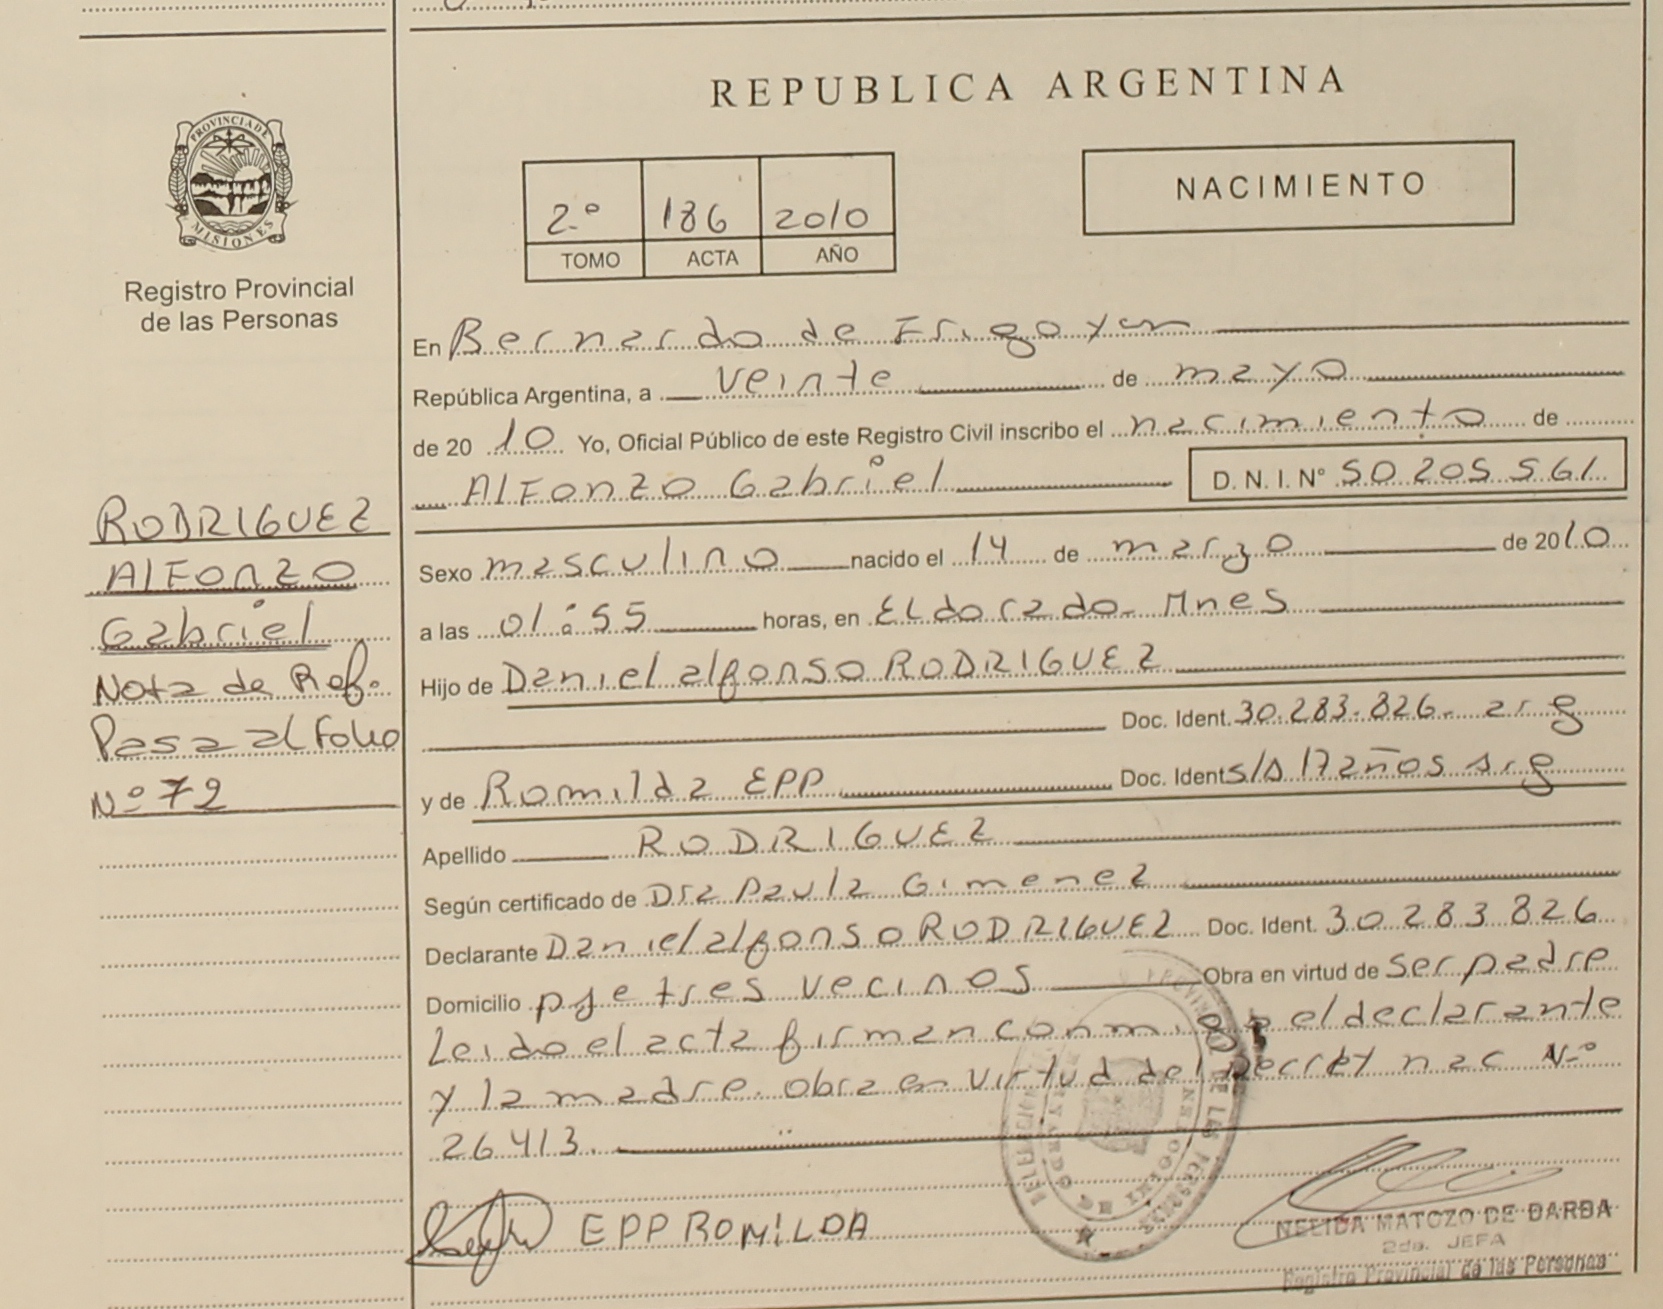 REPUBLICA ARGENTINA
PROVINCIA DE
MISIONES
Registro Provincial
de las Personas
2.º 186 2010
TOMO ACTA AÑO
NACIMIENTO
En Bernardo de Irigoyen
República Argentina, a veinte de mayo
de 2010 Yo, Oficial Público de este Registro Civil inscribo el nacimiento de
Alfonzo Gabriel D.N.I.Nº 50.205.561
RODRIGUEZ
AlFonzo
Gabriel
Nota de Ref.
Pasa al Folio
Nº 72
Sexo masculino nacido el 14 de marzo de 2010
a las 01:55 horas, en Eldorado - Mnes
Hijo de Daniel alfonso RODRIGUEZ
Doc. Ident. 30.283.826- arg
y de Romilda EPP Doc. Ident s/D 17 años arg
Apellido RODRIGUEZ
Según certificado de Dra Paula Gimenez
Declarante Daniel alfonso RODRIGUEZ Doc. Ident. 30283826
Domicilio pje tres vecinos Obra en virtud de ser padre
Leido el acta firman conmigo el declarante
y la madre. obra en virtud del Decret nac Nº
26413.
EPP ROMILDA
NELIDA MATOZO DE BARBA
2da. JEFA
Registro Provincial de las Personas